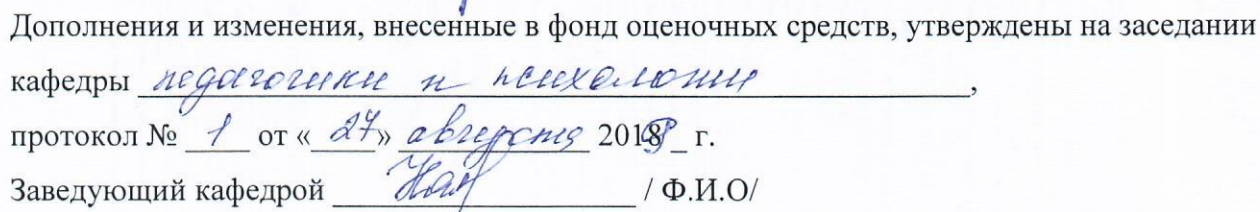 Дополнения и изменения, внесенные в фонд оценочных средств, утверждены на заседании
кафедры педагогики и психологии,
протокол № 1 от «27» августа 2018 г.
Заведующий кафедрой / Ф.И.О/